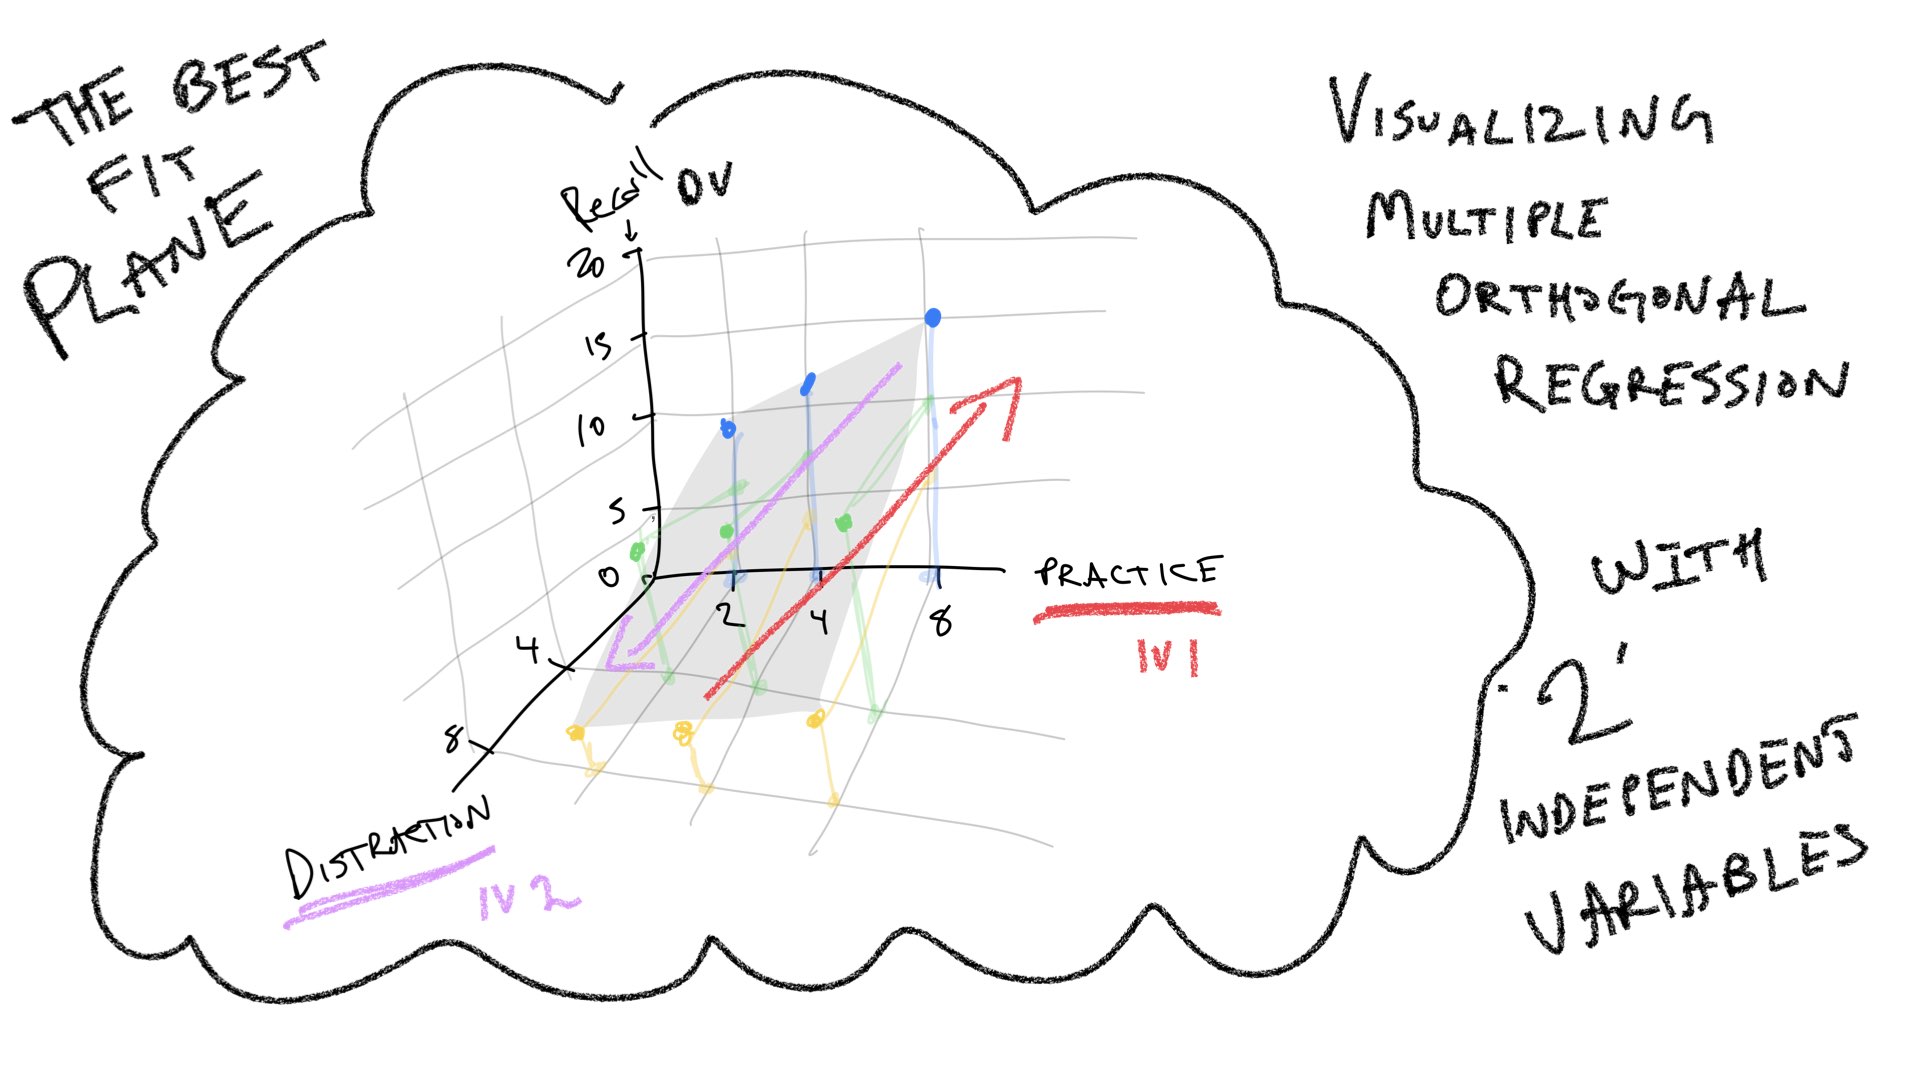 THE BEST
FIT
PLANE
VISUALIZING
MULTIPLE
ORTHOGONAL
REGRESSION
WITH
2
INDEPENDENT
VARIABLES
Recall DV
20
15
10
5
0
2 4 8
PRACTICE
IV 1
4
8
DISTRACTION
IV 2